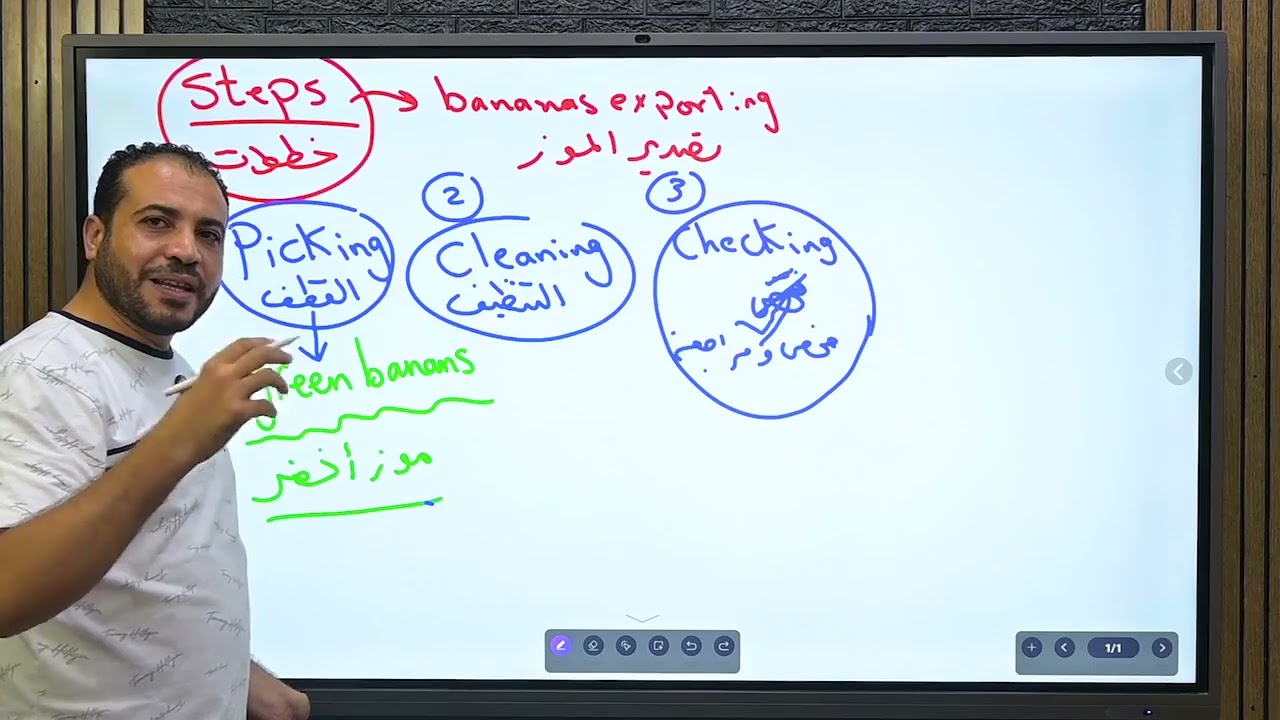 Steps → bananas exporting
خطوات
تصدير الموز
Picking
القطف
green banans
موز أخضر
2
Cleaning
التنظيف
3
Checking
فحص ومراجعة
1/1